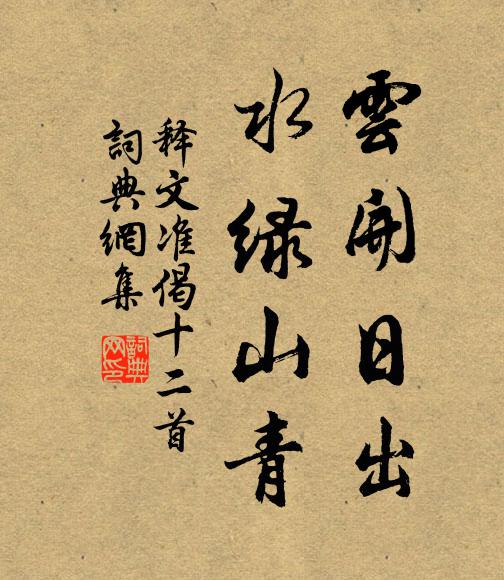 雲開日出
水绿山青
释文准偈十二首
詞典網集
詞典網印